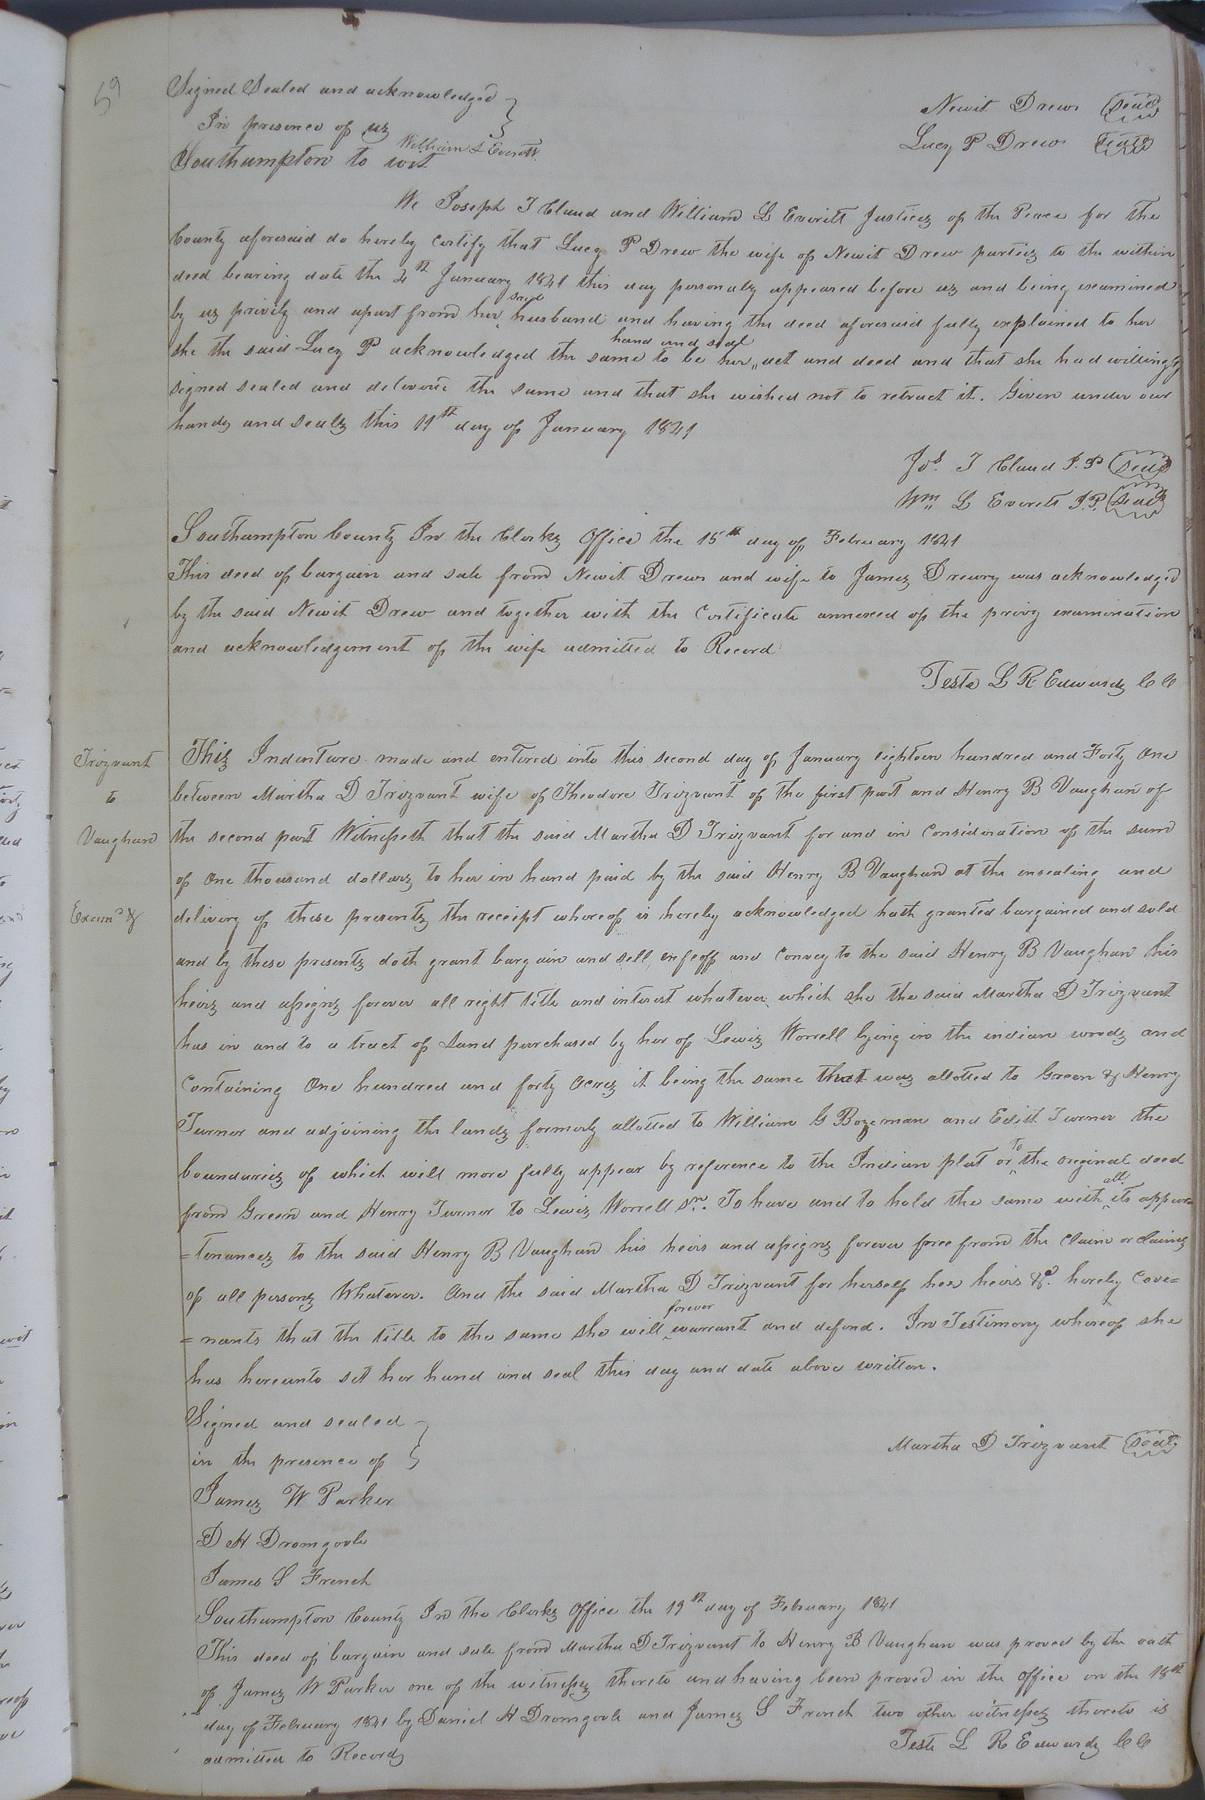 59
Signed Sealed and acknowledged
In presence of us
Newit Drew Seal
William L Everett
Lucy P Drew Seal
Southampton to wit
We Joseph T Claud and William L Everitt Justices of the Peace for the
County aforesaid do hereby certify that Lucy P Drew the wife of Newit Drew parties to the within
deed bearing date the 4th January 1841 this day personaly appeared before us and being examined
by us privily and apart from her said husband and having the deed aforesaid fully explained to her
she the said Lucy P acknowledged the same to be her hand and seal act and deed and that she had willingly
signed sealed and delivered the same and that she wished not to retract it. Given under our
hands and seals this 11th day of January 1841
Jos. T Claud J.P Seal
Wm L Everett J.P. Seal
Southampton County In the Clerks Office the 15th day of February 1841
This deed of bargain and sale from Newit Drew and wife to James Drewry was acknowledged
by the said Newit Drew and together with the Certificate annexed of the privy examination
and acknowledgement of the wife admitted to Record
Teste L R Edwards CC
Trizvant
to
Vaughan
Examd &
This Indenture made and entered into this second day of January eighteen hundred and Forty One
between Martha D Trizvant wife of Theodore Trizvant of the first part and Henry B Vaughan of
the second part Witnesseth that the said Martha D Trizvant for and in Consideration of the sum
of One thousand dollars to her in hand paid by the said Henry B Vaughan at the ensealing and
delivery of these presents the receipt whereof is hereby acknowledged hath granted bargained and sold
and by these presents doth grant bargain and sell, enfeoff and Convey to the said Henry B Vaughan his
heirs and assigns forever all right title and interest whatever which she the said Martha D Trizvant
has in and to a tract of Land purchased by her of Lewis Worrell lying in the indian woods and
Containing One hundred and forty Acres it being the same that was allotted to Green & Henry
Turner and adjoining the lands formerly allotted to William G Bozeman and Edith Turner the
boundaries of which will more fully appear by reference to the Indian plat or to the original deed
from Green and Henry Turner to Lewis Worrell Sr. To have and to hold the same with all its appur=
=tenances to the said Henry B Vaughan his heirs and assigns forever free from the Claim or Claims
of all persons Whatever. And the said Martha D Trizvant for herself her heirs &c. hereby Cove=
=nants that the title to the same she will forever warrant and defend. In Testimony whereof she
has hereunto set her hand and seal this day and date above written.
Signed and sealed
in the presence of
Martha D Trizvant Seal
James W Parker
D H Dromgoole
James S French
Southampton County In the Clerks Office the 19th day of February 1841
This deed of bargain and sale from Martha D Trizvant to Henry B Vaughan was proved by the oath
of James W Parker one of the witnesses thereto and having been proved in the Office on the 15th
day of February 1841 by Daniel H Dromgoole and James S French two other witnesses thereto is
admitted to Record
Teste L R Edwards CC